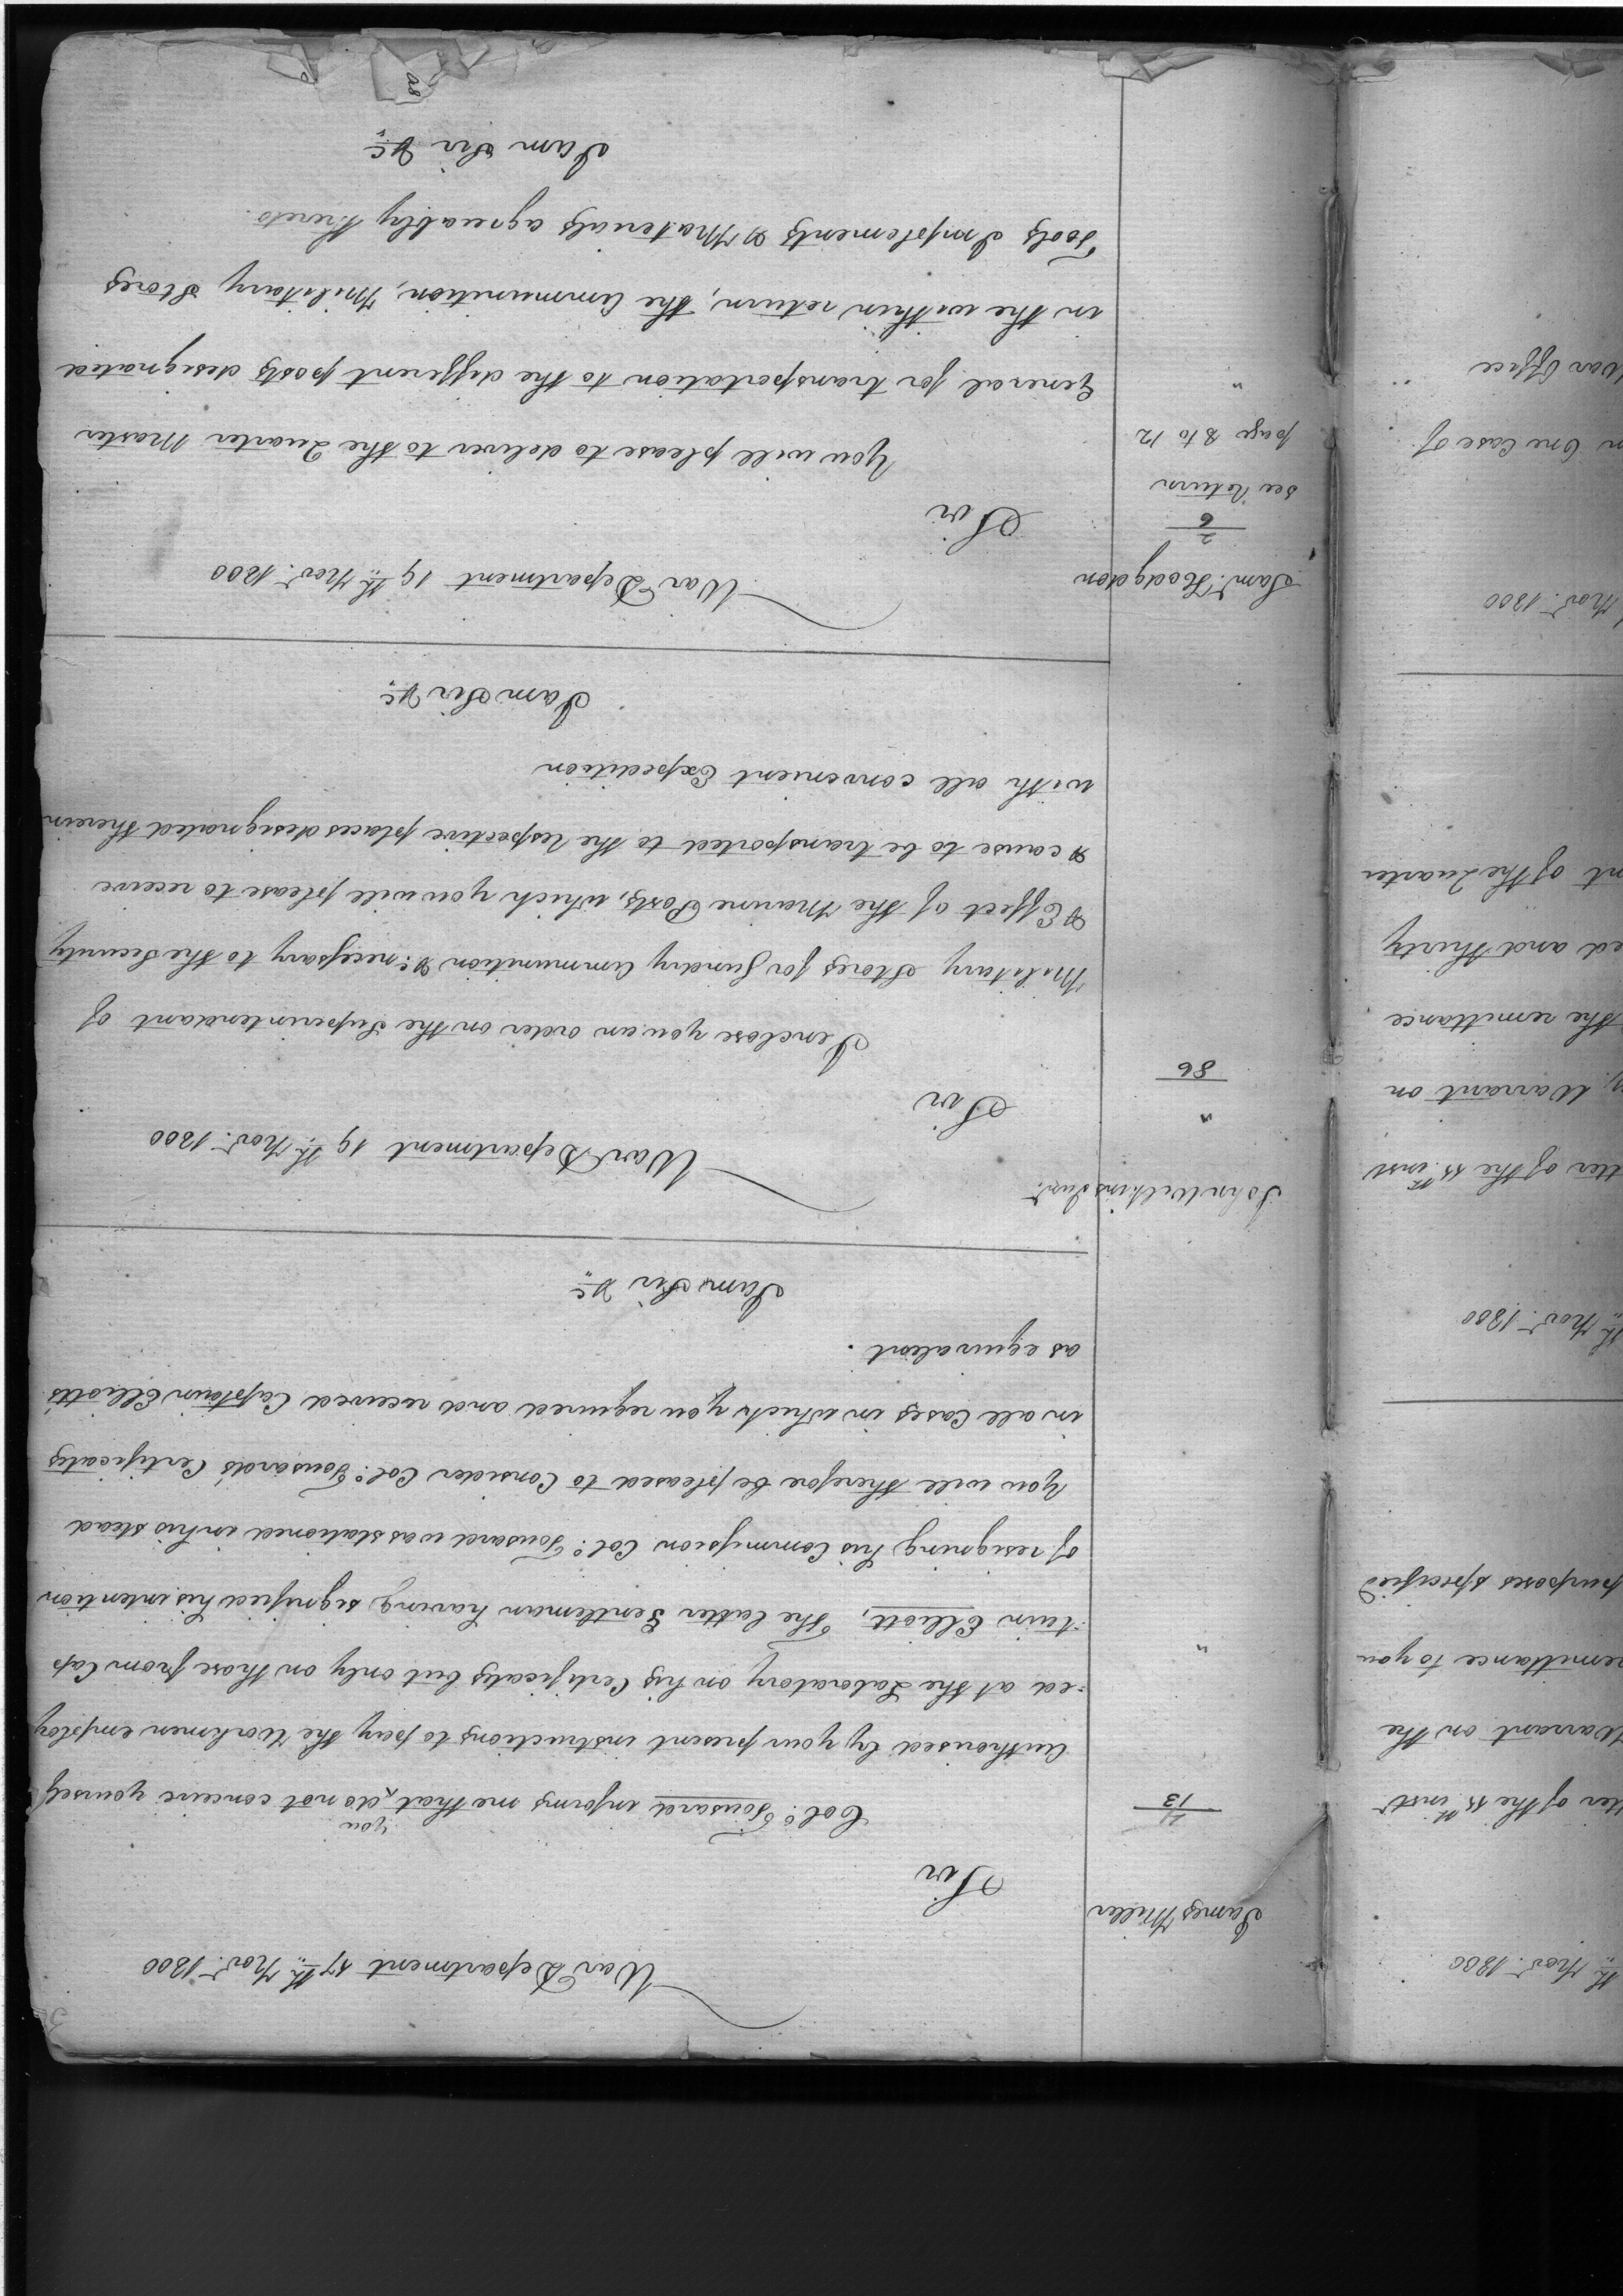 War Department 17th Novr. 1800
James Miller
Sir
11
13
you
Colo. Tousard informs me that do not conceive yourself
Authorised by your present instructions to pay the Workmen employ
-ed at the Laboratory on his Certificates but only on those from Cap
-tain Elliott, The latter Gentleman having signified his intention
of resigning his Commission Colo. Tousard was stationed in his stead
You will therefore be pleased to Consider Colo. Tousard's Certificates
in all Cases in which you required and received Captain Elliotts
as equivalent.
I am Sir &c
John Wilkins Junr.
War Department 19th Novr. 1800
"
86
Sir
I enclose you an order on the Superintendant of
Military Stores for Sundry Ammunition &c necessary to the Security
& Effect of the Marine Posts, which you will please to receive
& cause to be transported to the respective places designated therein
with all convenient Expedition
I am Sir &c
Saml. Hodgdon
War Department 19th Novr. 1800
2
6
Sir
see Return
page 8 to 12
"
You will please to deliver to the Quarter Master
General for transportation to the different posts designated
in the within return, the Ammunition, Military Stores
Tools Implements & Materials agreeably thereto.
I am Sir &c
th Novr. 1800
tter of the 11th inst
Warrant on the
remittance to you
purposes specified
th Novr. 1800
tter of the 11th inst
Warrant on
the remittance
ed and thirty
nt of the Quarter
Novr. 1800
n One Case of
War Office